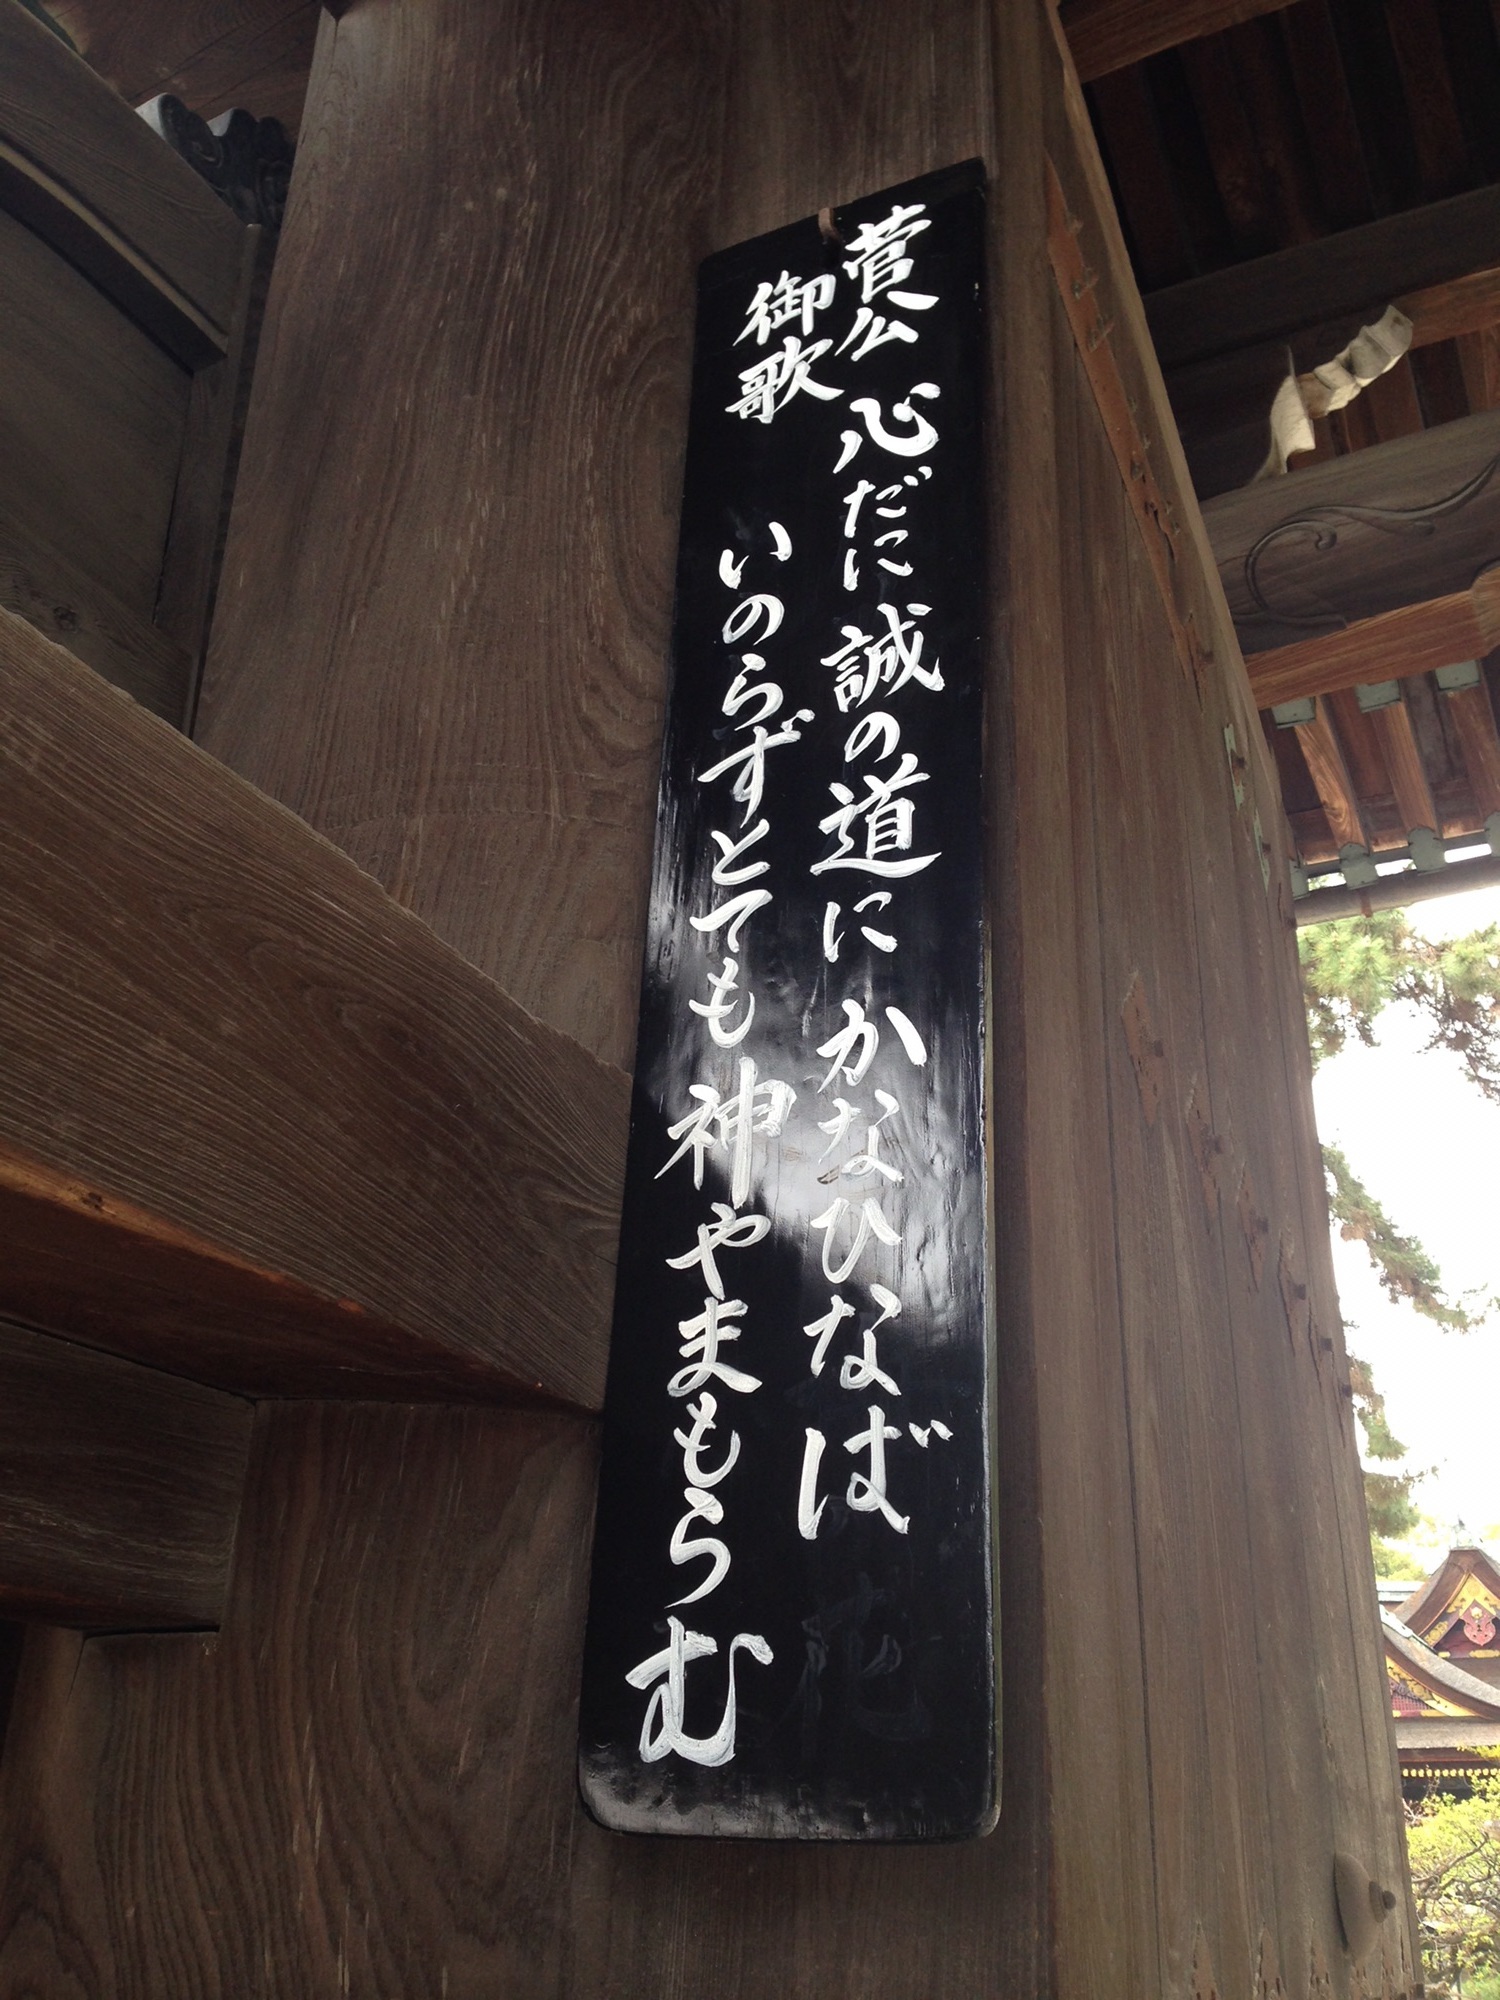 菅公御歌
心だに誠の道にかなひなば
いのらずとても神やまもらむ